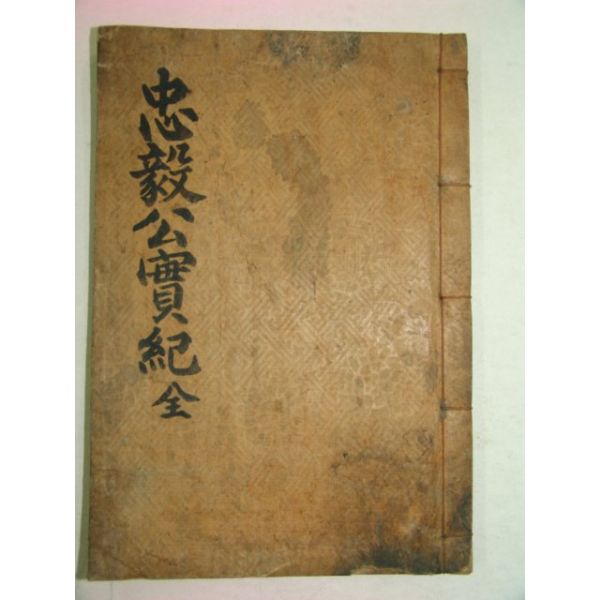 忠毅公實紀全